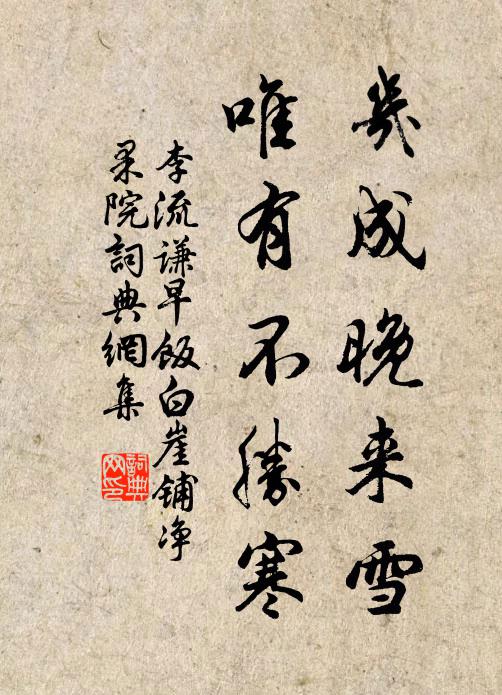 幾成晚来雪
唯有不勝寒
李流謙早飯白崖鋪净
果院詞典網集
詞典網印